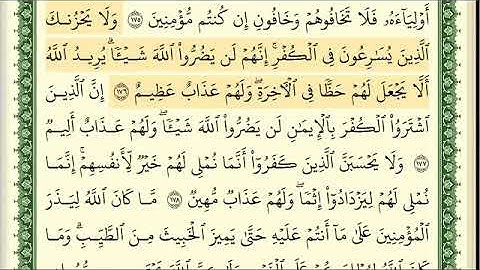 أَوْلِيَآءَهُۥ فَلَا تَخَافُوهُمْ وَخَافُونِ إِن كُنتُم مُّؤْمِنِينَ ١٧٥ وَلَا يَحْزُنكَ
ٱلَّذِينَ يُسَٰرِعُونَ فِي ٱلْكُفْرِۚ إِنَّهُمْ لَن يَضُرُّوا۟ ٱللَّهَ شَيْـًٔاۗ يُرِيدُ ٱللَّهُ
أَلَّا يَجْعَلَ لَهُمْ حَظًّا فِي ٱلْـَٔاخِرَةِۖ وَلَهُمْ عَذَابٌ عَظِيمٌ ١٧٦ إِنَّ ٱلَّذِينَ
ٱشْتَرَوُا۟ ٱلْكُفْرَ بِٱلْإِيمَٰنِ لَن يَضُرُّوا۟ ٱللَّهَ شَيْـًٔاۖ وَلَهُمْ عَذَابٌ أَلِيمٌ
١٧٧ وَلَا يَحْسَبَنَّ ٱلَّذِينَ كَفَرُوٓا۟ أَنَّمَا نُمْلِي لَهُمْ خَيْرٌ لِّأَنفُسِهِمْۚ إِنَّمَا
نُمْلِي لَهُمْ لِيَزْدَادُوٓا۟ إِثْمًاۖ وَلَهُمْ عَذَابٌ مُّهِينٌ ١٧٨ مَّا كَانَ ٱللَّهُ لِيَذَرَ
ٱلْمُؤْمِنِينَ عَلَىٰ مَآ أَنتُمْ عَلَيْهِ حَتَّىٰ يَمِيزَ ٱلْخَبِيثَ مِنَ ٱلطَّيِّبِۗ وَمَا